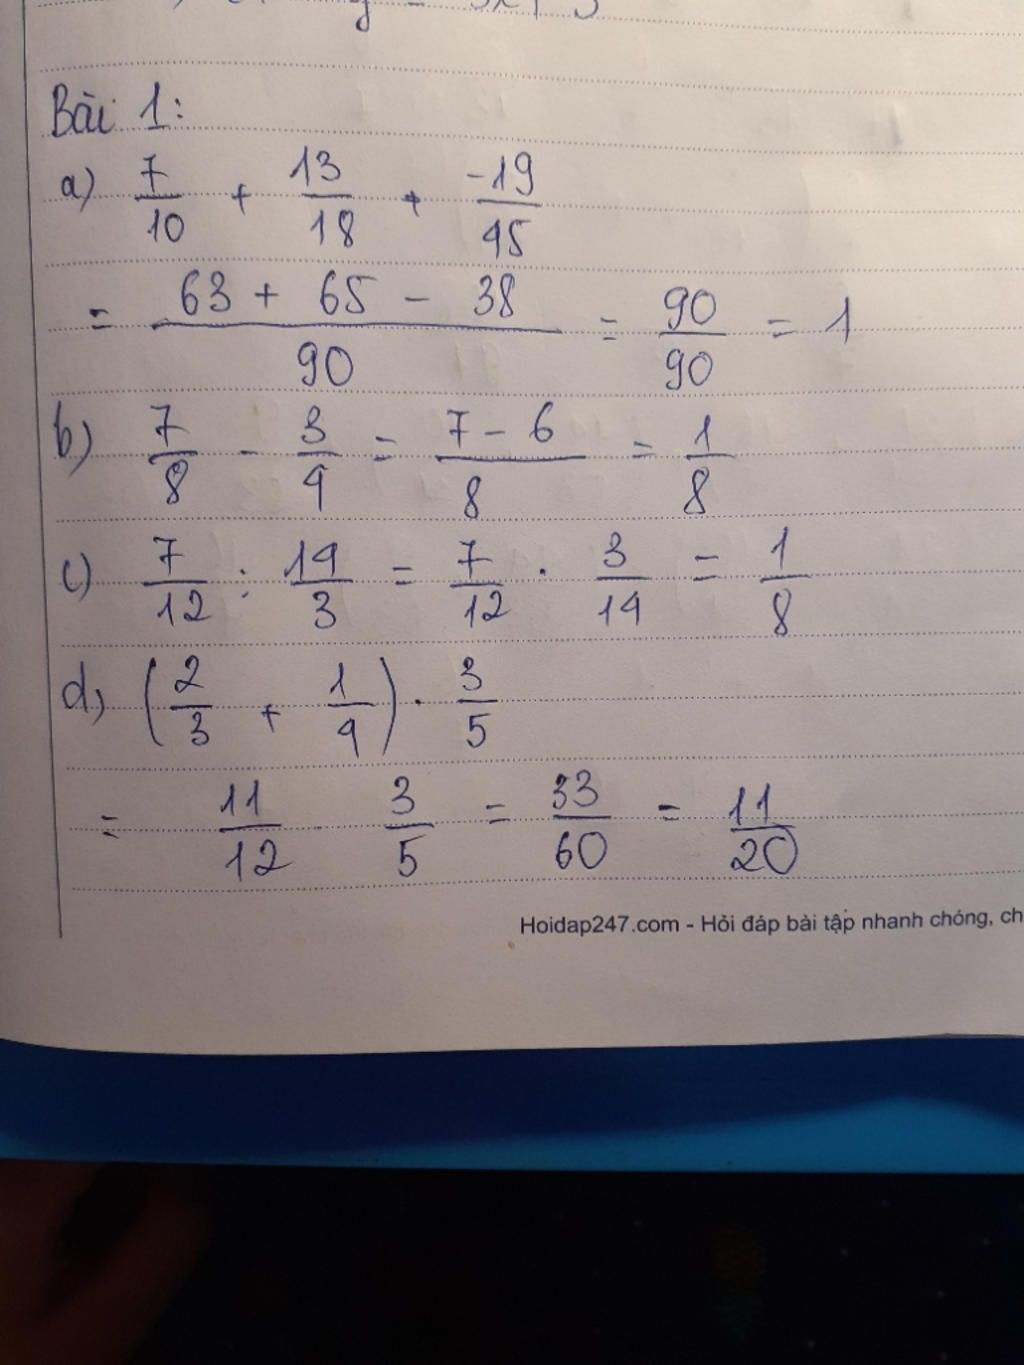 Bài 1:
a) 7/10 + 13/18 + -19/45
= (63 + 65 - 38)/90 = 90/90 = 1
b) 7/8 - 3/4 = (7 - 6)/8 = 1/8
c) 7/12 : 14/3 = 7/12 . 3/14 = 1/8
d) (2/3 + 1/4) . 3/5
= 11/12 3/5 = 33/60 = 11/20
Hoidap247.com - Hỏi đáp bài tập nhanh chóng, ch